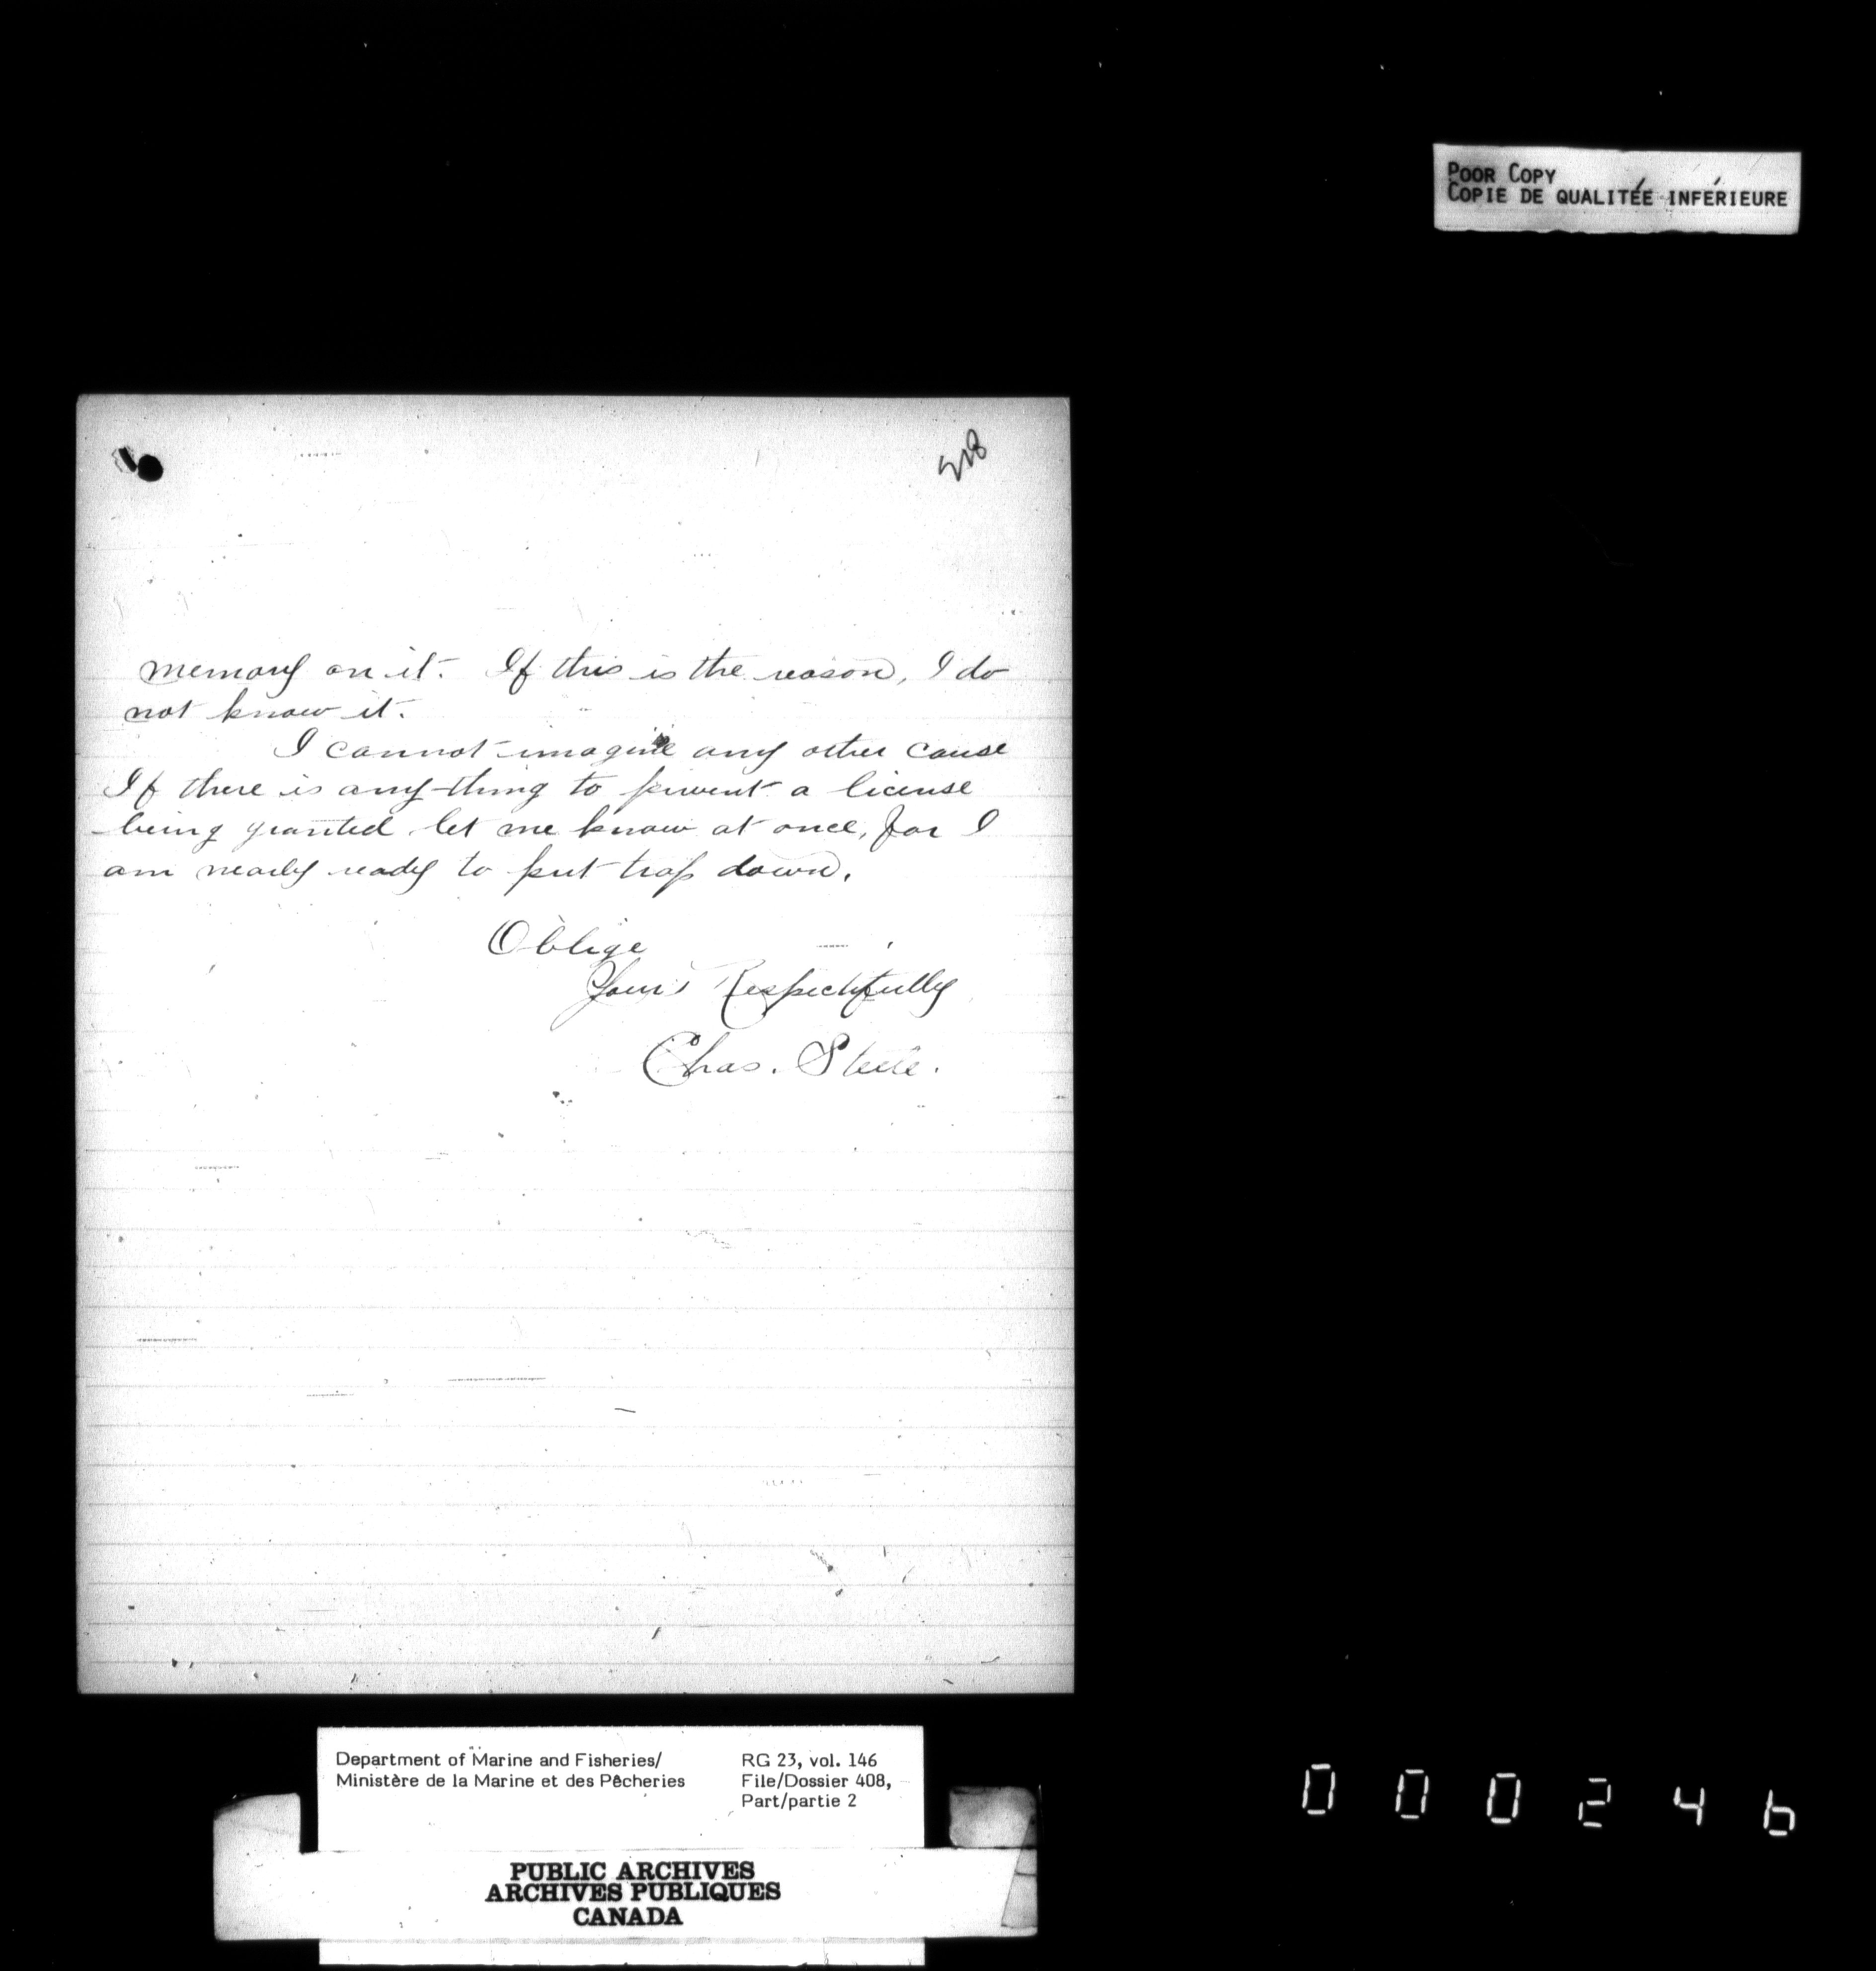 POOR COPY
COPIE DE QUALITÉE INFÉRIEURE
218
memory on it. If this is the reason, I do
not know it.
I cannot imagine any other cause
If there is any-thing to prevent a license
being granted let me know at once, for I
am nearly ready to put trap down.
Oblige
Yours Respectfully
Chas. Steele.
Department of Marine and Fisheries/
Ministère de la Marine et des Pêcheries
RG 23, vol. 146
File/Dossier 408,
Part/partie 2
PUBLIC ARCHIVES
ARCHIVES PUBLIQUES
CANADA
000246